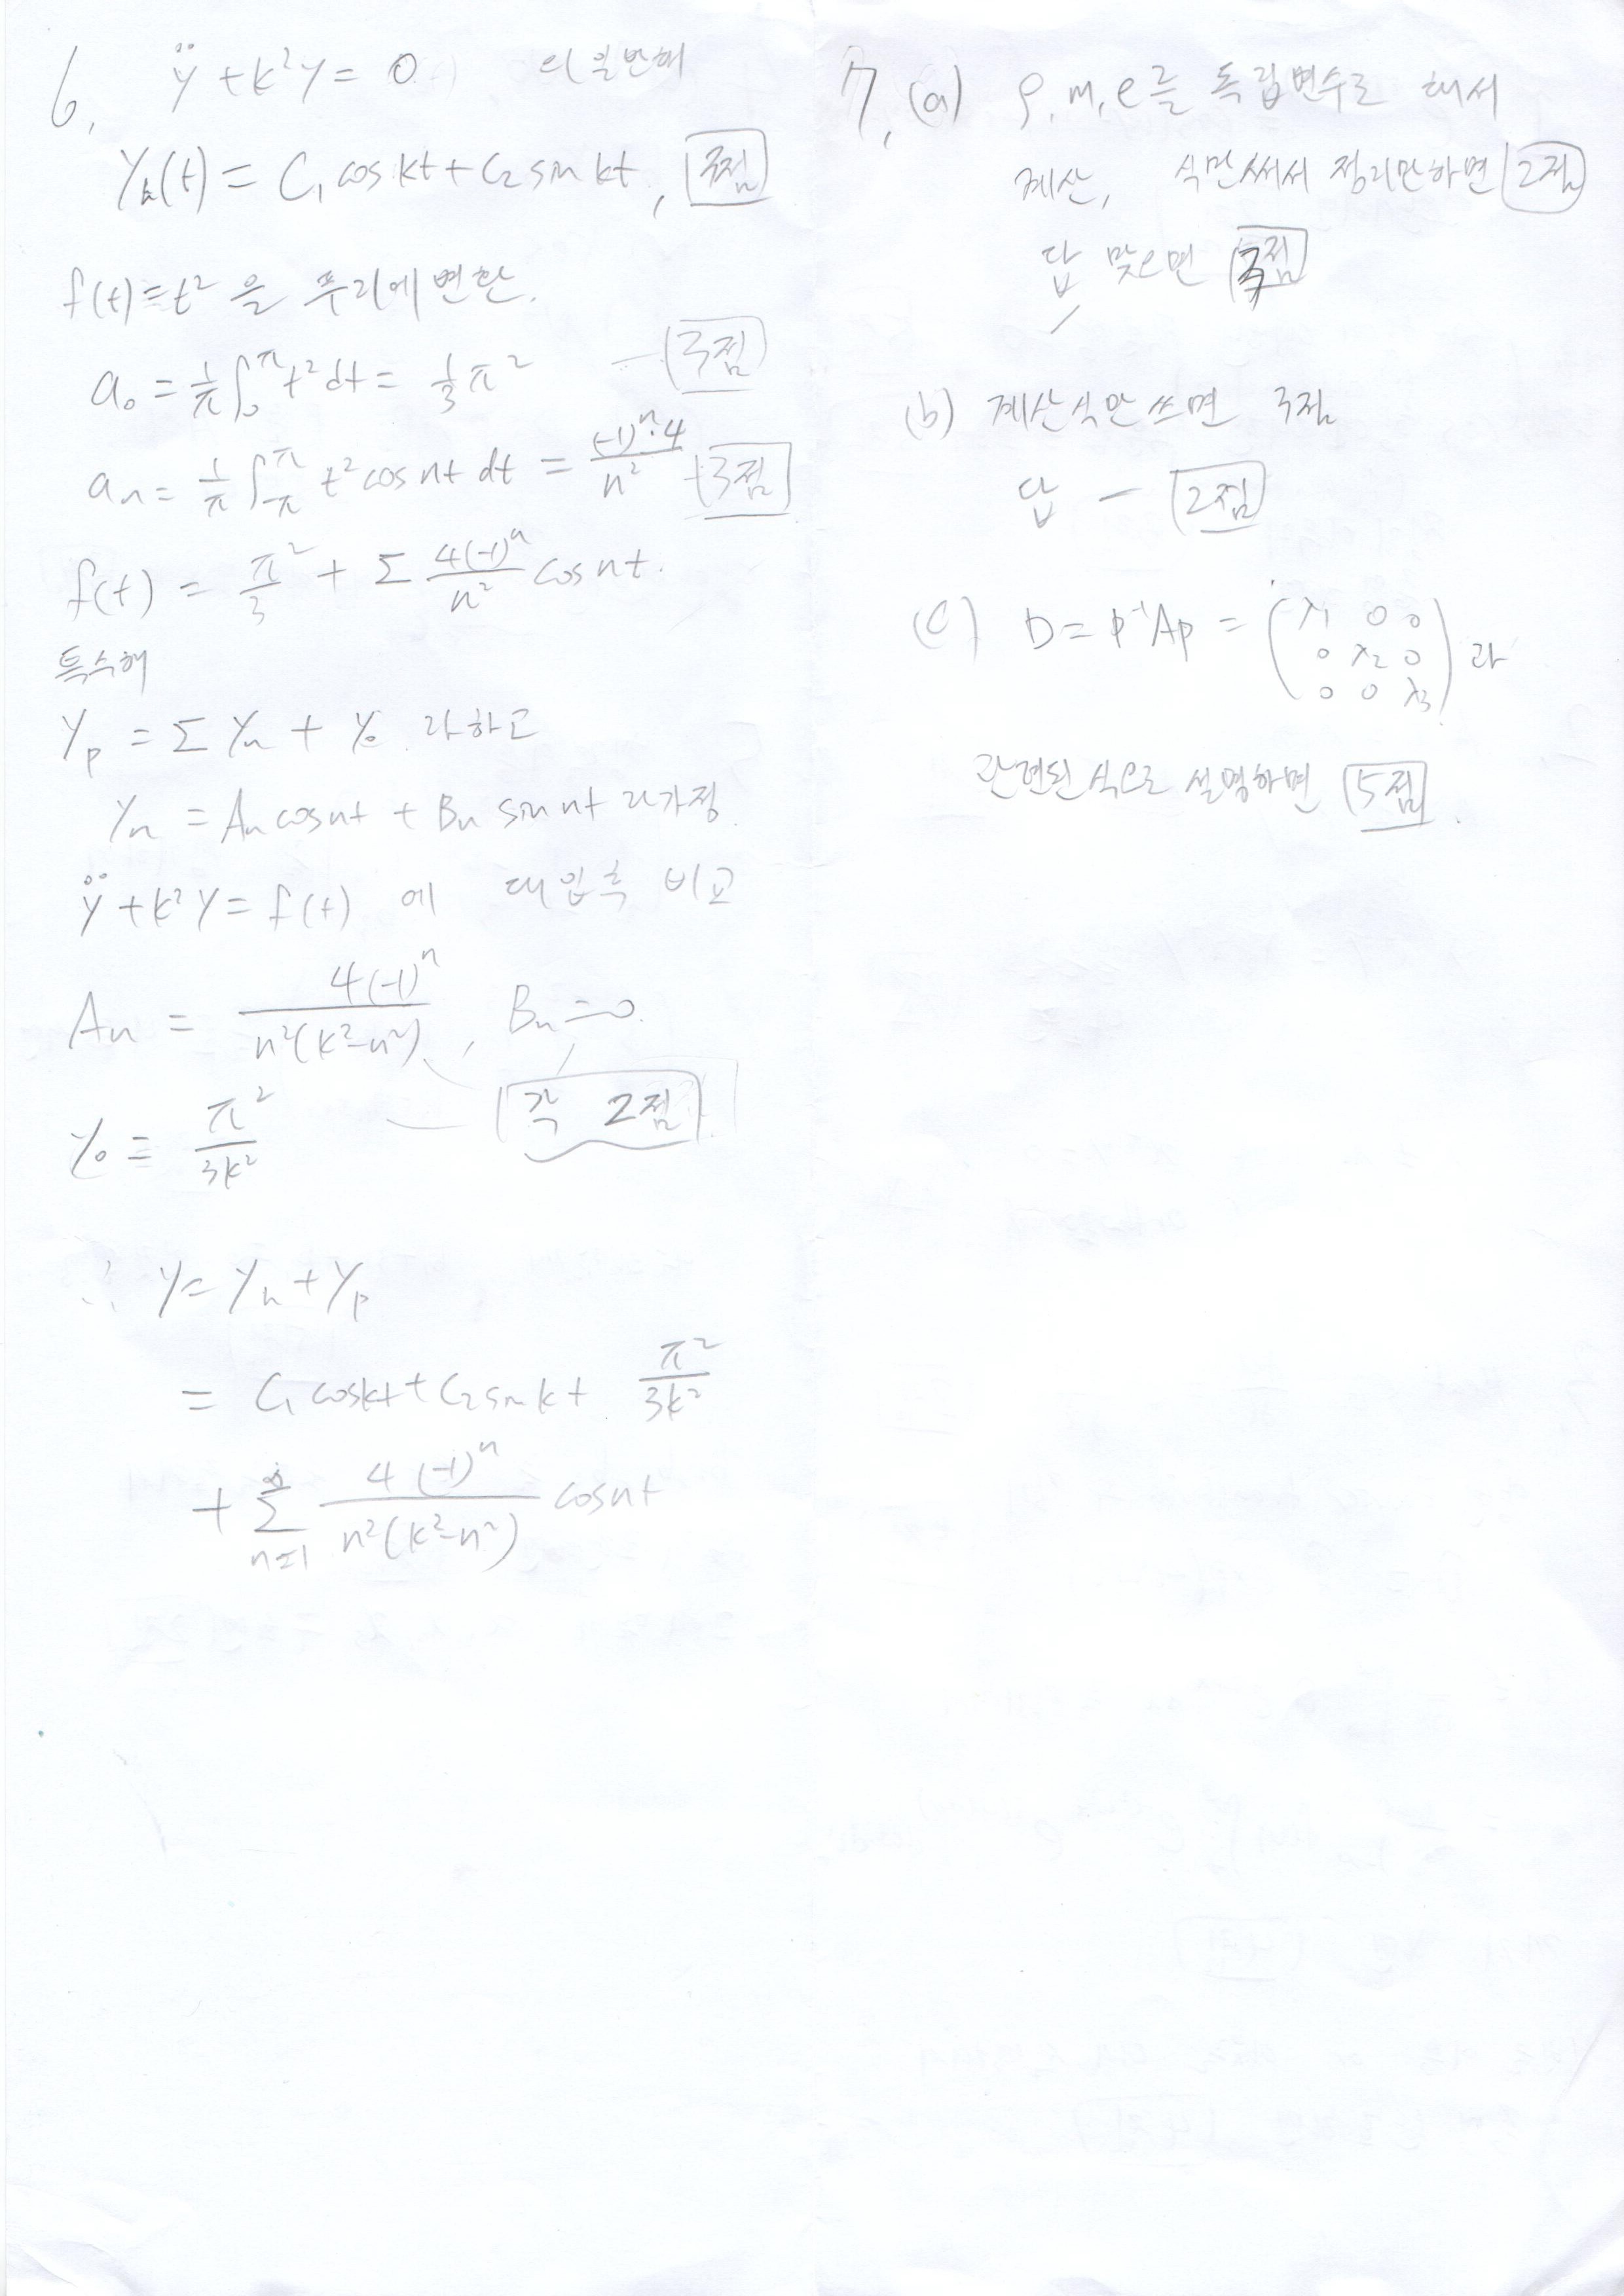 6. ÿ + k²y = 0 의 일반해
y_h(t) = C₁ cos kt + C₂ sin kt, 3점
f(t) = t² 을 푸리에 변환.
a₀ = 1/π ∫₀^π t² dt = 1/3 π² — 3점
aₙ = 1/π ∫_{-π}^{π} t² cos nt dt = (-1)ⁿ·4/n² 3점
f(t) = π²/3 + Σ 4(-1)ⁿ/n² cos nt.
특수해
y_p = Σ yₙ + y₀ 라하고
yₙ = Aₙ cos nt + Bₙ sin nt 라가정
ÿ + k²y = f(t) 에 대입후 비교
Aₙ = 4(-1)ⁿ/n²(k²-n²), Bₙ = 0.
y₀ = π²/3k² 각 2점
∴ y = y_h + y_p
= C₁ cos kt + C₂ sin kt π²/3k²
+ Σ_{n=1}^{∞} 4(-1)ⁿ/n²(k²-n²) cos nt
7. (a) ρ, m, e를 독립변수로 해서
계산, 식만써서 정리만하면 2점
답 맞으면 3점
(b) 계산식만 쓰면 3점
답 — 2점
(c) D = P⁻¹AP = (λ₁ 0 0
0 λ₂ 0
0 0 λ₃) 과
관련된 식으로 설명하면 5점.